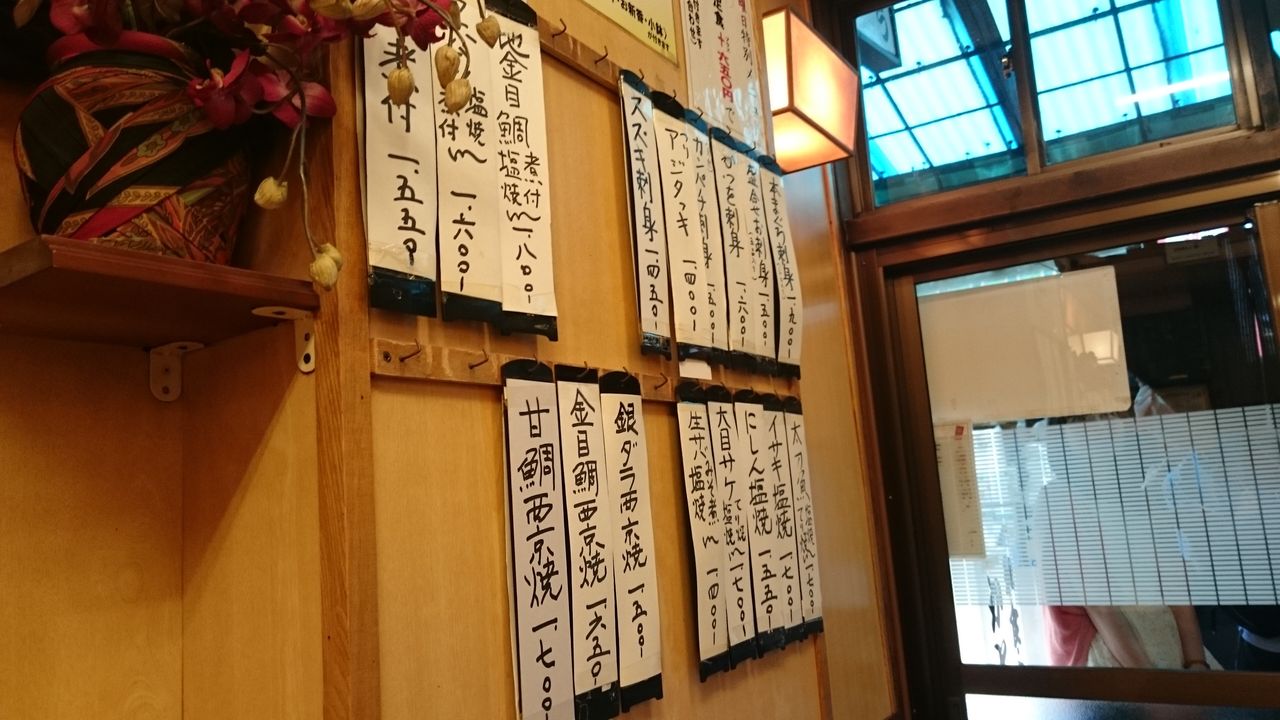 お新香・小鉢
が付きます
日特別メ
定食 十六五〇円
本まぐろ刺身 一、九〇〇
盛合せお刺身 一、五〇〇
かつを刺身 一、六〇〇
カンパチ刺身 一、五〇〇
アジタタキ 一、四〇〇
スズキ刺身 一、四五〇
地金目鯛 煮付 塩焼 一、八〇〇
塩焼 煮付 一、六〇〇
煮付 一、五五〇
塩焼 てり焼 一、七〇〇
イサキ塩焼 一、七〇〇
にしん塩焼 一、五五〇
大目サケ 塩焼 てり焼 一、七〇〇
生サバ 塩焼 みそ煮 一、四〇〇
銀ダラ西京焼 一、五〇〇
金目鯛西京焼 一、六五〇
甘鯛西京焼 一、七〇〇